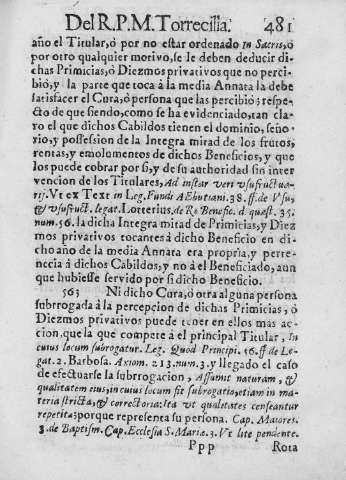 Del R. P. M. Torrecilla. 481
año el Titular, ò por no estar ordenado in Sacris, ò
por otro qualquier motivo, se le deben deducir di-
chas Primicias, ò Diezmos privativos que no perci-
biò, y la parte que toca à la media Annata la debe
satisfacer el Cura, ò persona que las percibiò; respe-
cto de que siendo, como se ha evidenciado, tan cla-
ro el que dichos Cabildos tienen el dominio, seño-
rio, y possession de la Integra mitad de los frutos,
rentas, y emolumentos de dichos Beneficios, y que
los puede cobrar por si, y de su authoridad sin inter
vencion de los Titulares, Ad instar veri usufructua-
rij. Ut ex Text in Leg. Fundi AEbutiani. 38. ff. de Usu,
& usufruct. legat. Lotterius de Re Benefic. d quæst. 35.
num. 56. la dicha Integra mitad de Primicias, y Diez
mos privativos tocantes à dicho Beneficio en di-
cho año de la media Annata era propria, y perte-
neccia à dichos Cabildos, y no à el Beneficiado, aun
que hubiesse servido por si dicho Beneficio.
563 Ni dicho Cura, ò otra alguna persona
subrrogada à la percepcion de dichas Primicias, ò
Diezmos privativos puede tener en ellos mas ac-
cion, que la que compete à el principal Titular, In
cuius locum subrogatur. Leg. Quod Principi. 56. ff de Le-
gat. 2. Barbosa. Axiom. 213. num. 3. y llegado el caso
de efectuarse la subrrogacion, Assumit naturam, &
qualitatem eius, in cuius locum fit subrogatio, etiam in ma-
teria stricta, & correctoria: Ita ut qualitates censeantur
repetita; porque representa su persona. Cap. Maiores.
3. de Baptism. Cap. Ecclesia S. Mariæ. 3. Ut lite pendente.
Ppp Rota